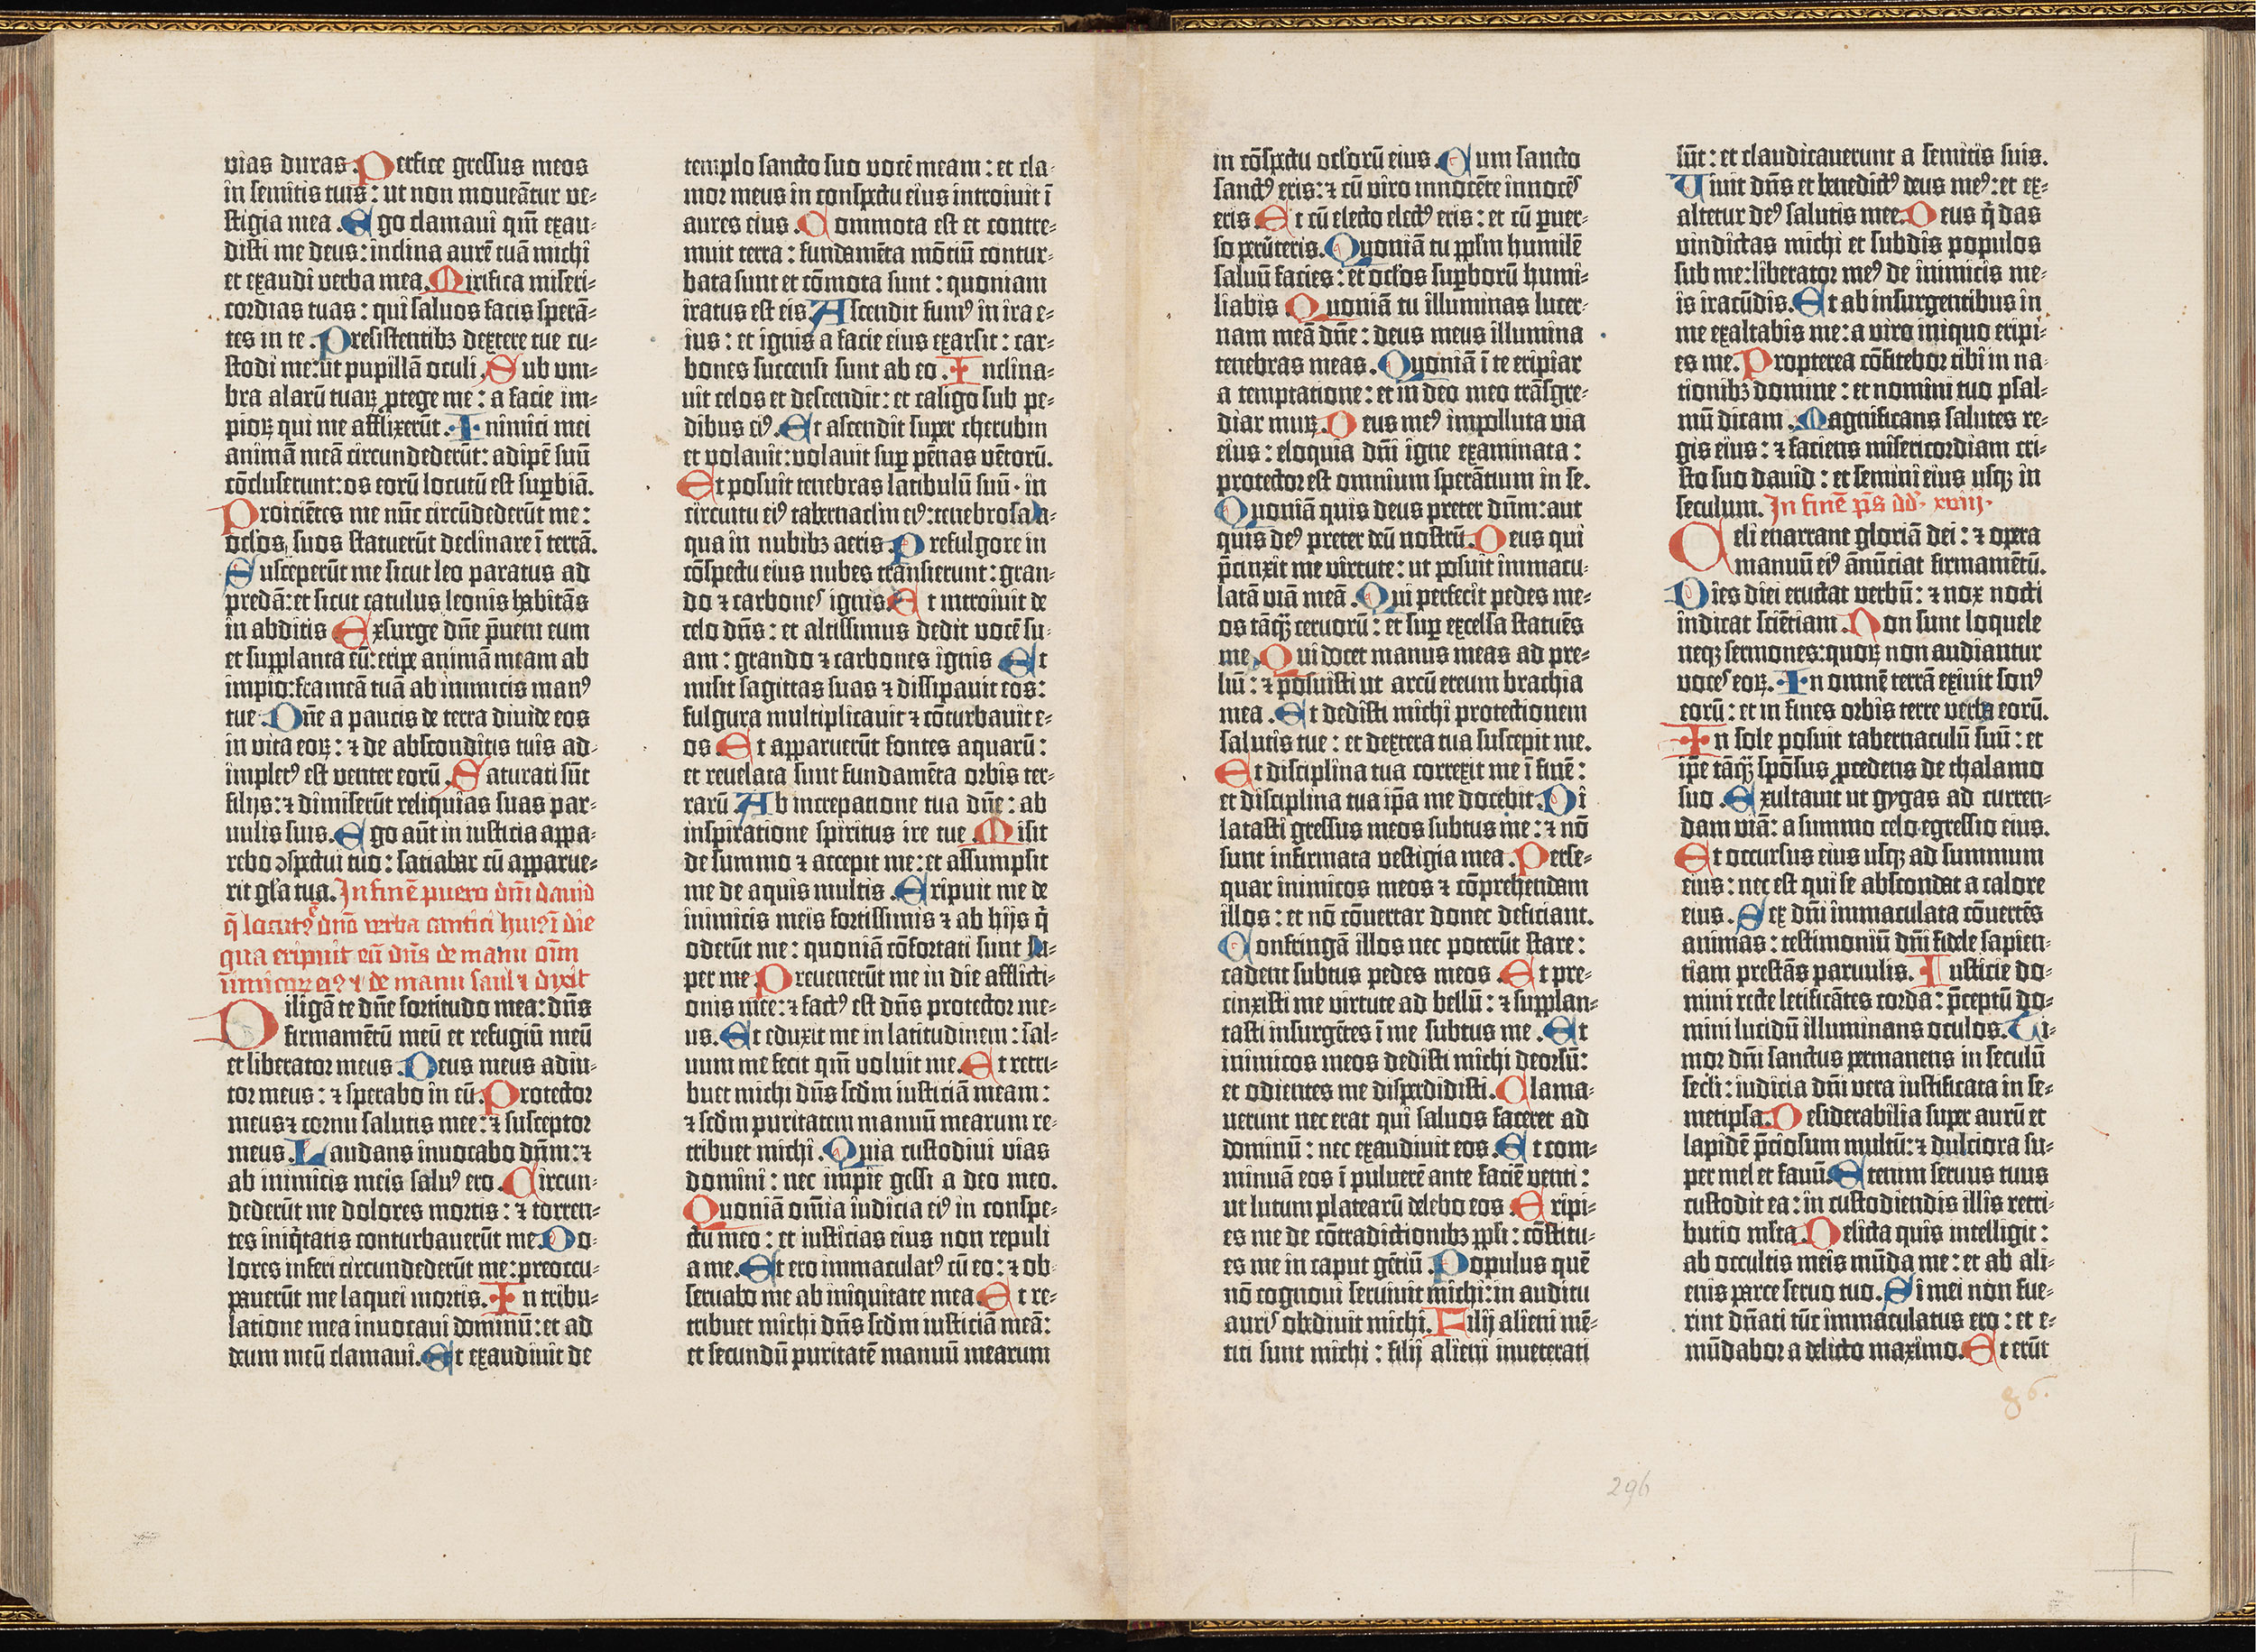 vias duras. Perfice gressus meos
in semitis tuis: ut non moueātur ve-
stigia mea. Ego clamaui qm̄ exau-
disti me deus: inclina aurē tuā michi
et exaudi verba mea. Mirifica miseri-
cordias tuas: qui saluos facis sperā-
tes in te. Presistentibꝫ dextere tue cu-
stodi me: ut pupillā oculi. Sub vm-
bra alarū tuaꝝ ꝓtege me: a facie im-
pioꝝ qui me afflixerūt. Inimici mei
animā meā circundederūt: adipē suū
cōcluserunt: os eorū locutū est suꝑbiā.
Proiciētes me nūc circūdederūt me:
oclos suos statuerūt declinare ī terrā.
Susceperūt me sicut leo paratus ad
predā: et sicut catulus leonis habitās
in abditis. Exsurge dn̄e p̄ueni eum
et supplanta eū: eripe animā meam ab
impio: frameā tuā ab inimicis manꝰ
tue. Dn̄e a paucis de terra diuide eos
in vita eoꝝ: ⁊ de absconditis tuis ad-
impletꝰ est venter eorū. Saturati sūt
filijs: ⁊ dimiserūt reliquias suas par-
uulis suis. Ego aūt in iusticia appa-
rebo ꝯspectui tuo: satiabor cū apparue-
rit gl'a tua. In finē puero dn̄i dauid
q̄ locutꝰ ē dn̄o verba cantici huiꝰ ī die
qua eripuit eū dn̄s de manu oīm
inimicoꝝ eiꝰ ⁊ de manu saul ⁊ dixit
Diligā te dn̄e fortitudo mea: dn̄s
firmamētū meū et refugiū meū
et liberator meus. Deus meus adiu-
tor meus: ⁊ sperabo in eū. Protector
meus ⁊ cornu salutis mee: ⁊ susceptor
meus. Laudans inuocabo dn̄m: ⁊
ab inimicis meis saluꝰ ero. Circun-
dederūt me dolores mortis: ⁊ torren-
tes iniq̄tatis conturbauerūt me. Do-
lores inferi circundederūt me: preoccu-
pauerūt me laquei mortis. In tribu-
latione mea inuocaui dominū: et ad
deum meū clamaui. Et exaudiuit de
templo sancto suo vocē meam: et cla-
mor meus in conspectu eius introiuit ī
aures eius. Commota est et contre-
muit terra: fundamēta mōtiū contur-
bata sunt et cōmota sunt: quoniam
iratus est eis. Ascendit fumꝰ in ira e-
ius: et ignis a facie eius exarsit: car-
bones succensi sunt ab eo. Inclina-
uit celos et descendit: et caligo sub pe-
dibus eiꝰ. Et ascendit super cherubin
et volauit: volauit suꝑ pēnas vētorū.
Et posuit tenebras latibulū suū. in
circuitu eiꝰ tabernaclm eiꝰ: tenebrosa a-
qua in nubibꝫ aeris. Prefulgore in
cōspectu eius nubes transierunt: gran-
do ⁊ carbones ignis. Et intoiuit de
celo dn̄s: et altissimus dedit vocē su-
am: grando ⁊ carbones ignis. Et
misit sagittas suas ⁊ dissipauit eos:
fulgura multiplicauit ⁊ cōturbauit e-
os. Et apparuerūt fontes aquarū:
et reuelata sunt fundamēta orbis ter-
rarū. Ab increpatione tua dn̄e: ab
inspiratione spiritus ire tue. Misit
de summo ⁊ accepit me: et assumpsit
me de aquis multis. Eripuit me de
inimicis meis fortissimis ⁊ ab hijs q̄
oderūt me: quoniā cōfortati sunt su-
per me. Preuenerūt me in die afflicti-
onis mee: ⁊ factꝰ est dn̄s protector me-
us. Et eduxit me in latitudinem: sal-
uum me fecit qm̄ voluit me. Et retri-
buet michi dn̄s scd̄m iusticiā meam:
⁊ scd̄m puritatem manuū mearum re-
tribuet michi. Quia custodiui vias
domini: nec impie gessi a deo meo.
Quoniā om̄ia iudicia eiꝰ in conspe-
ctu meo: et iusticias eius non repuli
a me. Et ero immaculatꝰ cū eo: ⁊ ob-
seruabo me ab iniquitate mea. Et re-
tribuet michi dn̄s scd̄m iusticiā meā:
et secundū puritatē manuū mearum
in cōspectu ocl'orū eius. Cum sancto
sanctꝰ eris: ⁊ cū viro innocēte innocēs
eris. Et cū electo electꝰ eris: et cū peruer-
so peruēteris. Quoniā tu ppl'm humilē
saluū facies: et ocl'os suꝑborū humi-
liabis. Quoniā tu illuminas lucer-
nam meā dn̄e: deus meus illumina
tenebras meas. Quoniā ī te eripiar
a temptatione: et in deo meo trāsgre-
diar muꝝ. Deus meꝰ impolluta via
eius: eloquia dn̄i igne examinata:
protector est omnium sperātium in se.
Quoniā quis deus preter dn̄m: aut
quis deꝰ preter deū nostrū. Deus qui
p̄cinxit me virtute: ut posuit immacu-
latā viā meā. Qui perfecit pedes me-
os tāqꝫ ceruorū: et suꝑ excelsa statuēs
me. Qui docet manus meas ad pre-
liū: ⁊ posuisti ut arcū ereum brachia
mea. Et dedisti michi protectionem
salutis tue: et dextera tua suscepit me.
Et disciplina tua correxit me ī finē:
et disciplina tua ip̄a me docebit. Di
latasti gressus meos subtus me: ⁊ nō
sunt infirmata vestigia mea. Perse-
quar inimicos meos ⁊ cōprehendam
illos: et nō cōuertar donec deficiant.
Confringā illos nec poterūt stare:
cadent subtus pedes meos. Et pre-
cinxisti me virtute ad bellū: ⁊ supplan-
tasti insurgētes ī me subtus me. Et
inimicos meos dedisti michi deorsū:
et odientes me disperdidisti. Clama-
uerunt nec erat qui saluos faceret ad
dominū: nec exaudiuit eos. Et com-
minuā eos ī puluerē ante faciē venti:
ut lutum platearū delebo eos. Eripi-
es me de cōtradictionibꝫ ppl'i: cōstitu-
es me in caput gētiū. Populus quē
nō cognoui seruiuit michi: in auditu
auris obediuit michi. Filij alieni mē-
titi sunt michi: filij alieni inueterati
sūt: et claudicauerunt a semitis suis.
Viuit dn̄s et benedictꝰ deus meꝰ: et ex-
altetur deꝰ salutis mee. Deus q̄ das
vindictas michi et subdis populos
sub me: liberator meꝰ de inimicis me-
is iracūdis. Et ab insurgentibus in
me exaltabis me: a viro iniquo eripi-
es me. Propterea cōfitebor tibi in na-
tionibꝫ domine: et nomini tuo psal-
mū dicam. Magnificans salutes re-
gis eius: ⁊ faciens misericordiam cri-
sto suo dauid: et semini eius usqꝫ in
seculum. In finē p̄s dd̄. xviij.
Celi enarrant gloriā dei: ⁊ opera
manuū eiꝰ ānūciat firmamētū.
Dies diei eructat verbū: ⁊ nox nocti
indicat sciētiam. Non sunt loquele
neqꝫ sermones: quoꝝ non audiantur
voces eoꝝ. In omnē terrā exiuit sonꝰ
eorū: et in fines orbis terre verba eorū.
In sole posuit tabernaculū suū: et
ip̄e tāqꝫ spōsus ꝓcedens de thalamo
suo. Exultauit ut gygas ad curren-
dam viā: a summo celo egressio eius.
Et occursus eius usqꝫ ad summum
eius: nec est qui se abscondat a calore
eius. Lex dn̄i immaculata cōuertēs
animas: testimoniū dn̄i fidele sapien-
tiam prestās paruulis. Iusticie do-
mini recte letificātes corda: p̄ceptū do-
mini lucidū illuminans oculos. Ti-
mor dn̄i sanctus permanens in seculū
secl'i: iudicia dn̄i vera iustificata in se-
metipsa. Desiderabilia super aurū et
lapidē p̄ciosum multū: ⁊ dulciora su-
per mel et fauū. Etenim seruus tuus
custodit ea: in custodiendis illis retri-
butio mlta. Delicta quis intelligit:
ab occultis meis mūda me: et ab ali-
enis parce seruo tuo. Si mei non fue-
rint dn̄ati tūc immaculatus ero: et e-
mūdabor a delicto maximo. Et erūt
86.
296